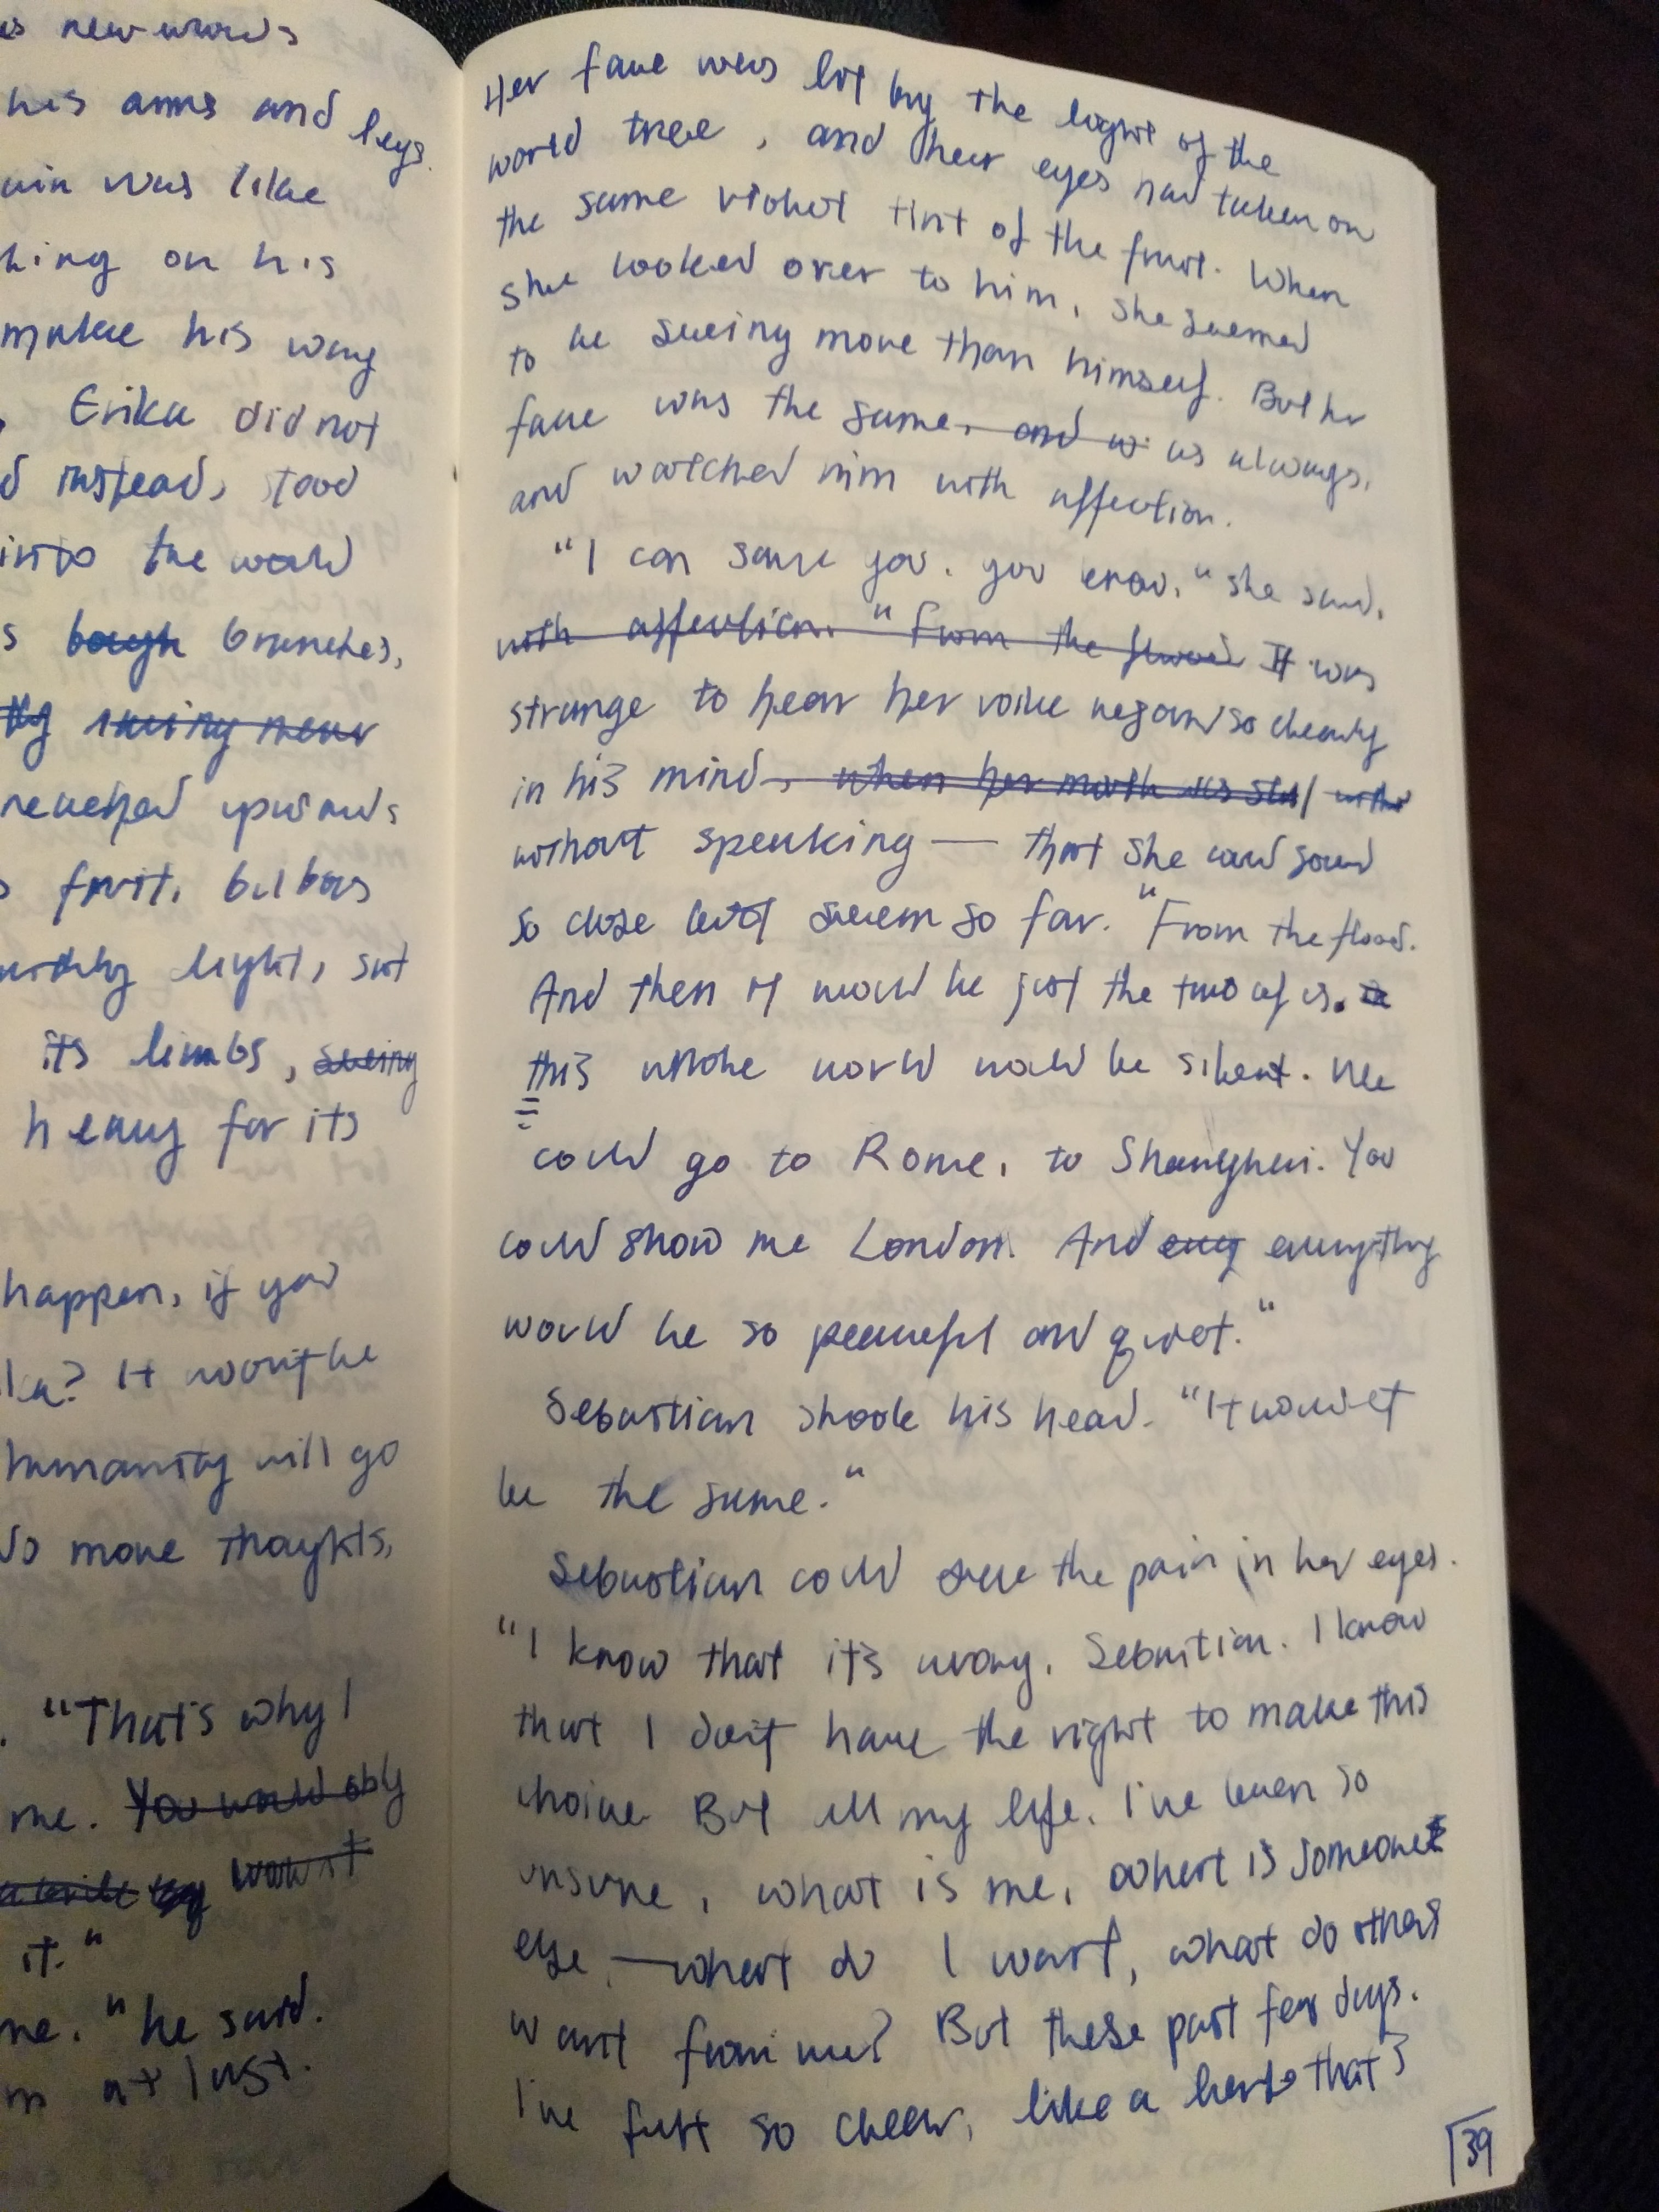 new words
his arms and legs.
was like
hing on his
make his way
Erika did not
instead, stood
into the world
s bough branches,
reached upwards
s fruit, bulbous
light,
its limbs, seeing
heavy for its
happen, if you
It won't be
humanity will go
No more thoughts,
. "That's why I
me. You would only
won't
it."
me." he said.
at last.
Her face was lit by the light of the
world tree, and her eyes had taken on
the same violet tint of the fruit. When
she looked over to him, she seemed
to be seeing more than himself. But her
face was the same, and w as always,
and watched him with affection.
"I can save you, you know," she said,
with affection. "From the flood It was
strange to hear her voice so clearly
in his mind, when her mouth was still
without speaking — that she could sound
so close but seem so far. "From the flood.
And then it would be just the two of us.
this whole world would be silent. We
could go to Rome, to Shanghai. You
could show me London. And evey everything
would be so peaceful and quiet."
Sebastian shook his head. "It wouldn't
be the same."
Sebastian could see the pain in her eyes.
"I know that it's wrong, Sebastian. I know
that I don't have the right to make this
choice But all my life, I've been so
unsure, what is me, what is someone
else, — what do I want, what do others
want from me? But these past few days,
I've felt so clear, like a that's
39